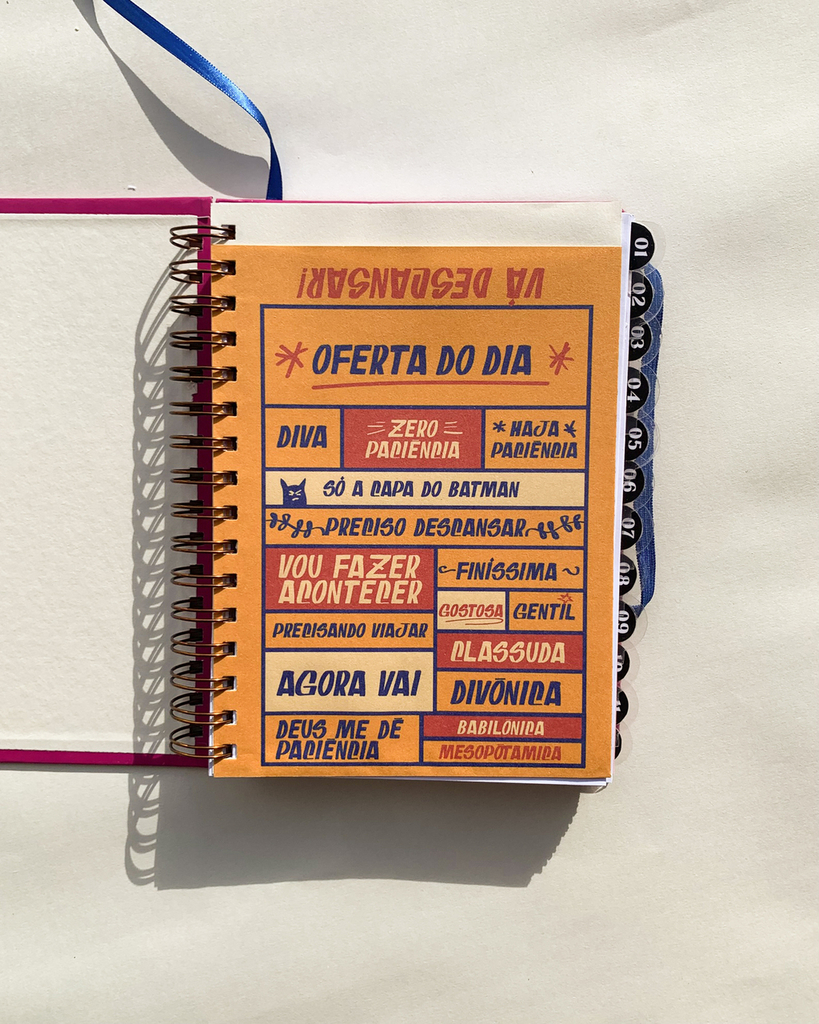 VÁ DESCANSAR!
OFERTA DO DIA
DIVA
ZERO
PACIÊNCIA
HAJA
PACIÊNCIA
SÓ A CAPA DO BATMAN
PRECISO DESCANSAR
VOU FAZER
ACONTECER
FINÍSSIMA
GOSTOSA
GENTIL
PRECISANDO VIAJAR
CLASSUDA
AGORA VAI
DIVÔNICA
DEUS ME DÊ
PACIÊNCIA
BABILÔNICA
MESOPOTÂMICA
01
02
03
04
05
06
07
08
09
10
11